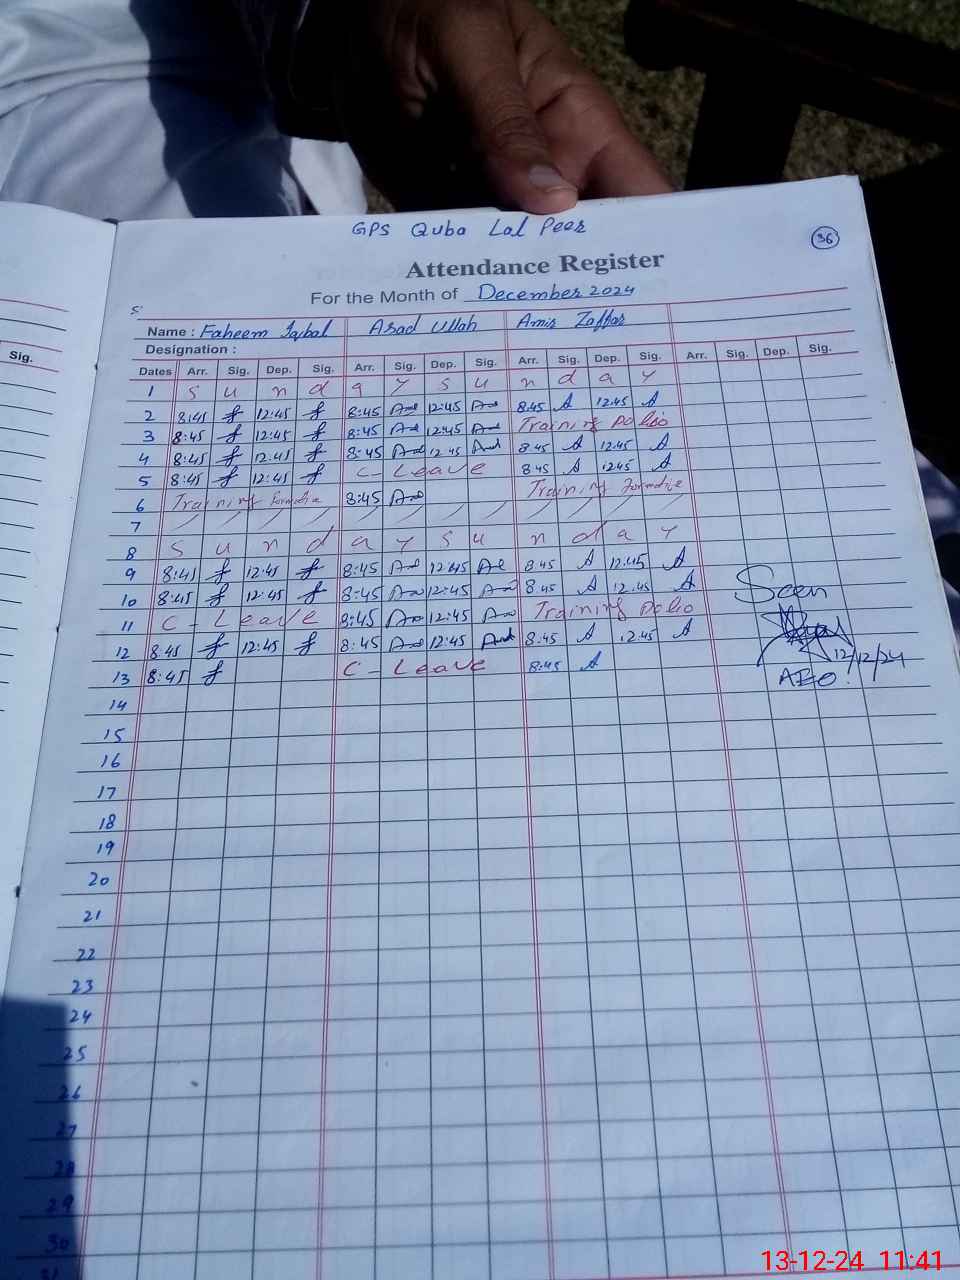 GPS Quba Lal Peer
36
Attendance Register
For the Month of December 2024
Sig.
Name : Faheem Iqbal Asad Ullah Amir Zaffar
Designation :
Dates Arr. Sig. Dep. Sig. Arr. Sig. Dep. Sig. Arr. Sig. Dep. Sig. Arr. Sig. Dep. Sig.
1 S u n d a y S u n d a y
2 8:45 12:45 8:45 12:45 8:45 12:45
3 8:45 12:45 8:45 12:45 Training Polio
4 8:45 12:45 8:45 12:45 8:45 12:45
5 8:45 12:45 C - Leave 8:45 12:45
6 Training Formative 8:45 Training Formative
7
8 S u n d a y S u n d a y
9 8:45 12:45 8:45 12:45 8:45 12:45
10 8:45 12:45 8:45 12:45 8:45 12:45
11 C - Leave 8:45 12:45 Training Polio
12 8:45 12:45 8:45 12:45 8:45 12:45
13 8:45 C - Leave 8:45
Seen
12/12/24
AEO.
14
15
16
17
18
19
20
21
22
23
24
25
26
27
28
29
30
31
13-12-24 11:41